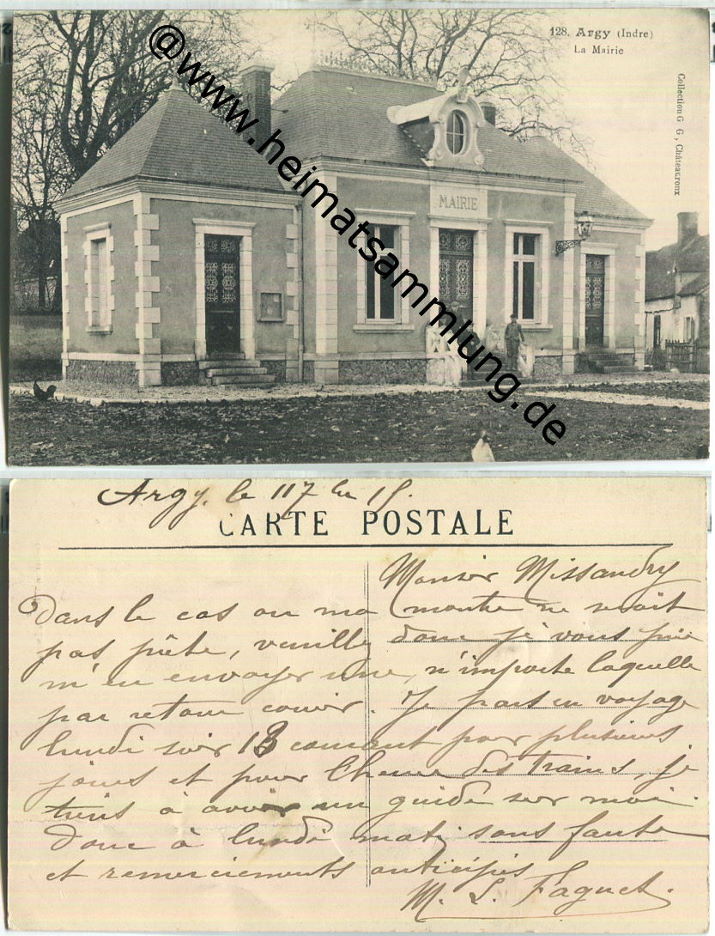 128. Argy (Indre)
La Mairie
Collection G G, Châteauroux
MAIRIE
@www.heimatsammlung.de
Argy, le
CARTE POSTALE
Monsier Missandry
Dans le cas ou ma montre ne serait
pas prête, veuillez donc je vous prie
m'en envoyer une, n'importe laquelle
par retour courier. Je pars en voyage
lundi soir 13 courant pour plusieurs
jours et pour l'heure des trains, je
tiens à avoir un guide sur moi.
donc à lundi matin sans faute
et remerciements anticipés
M. L. Faguet.